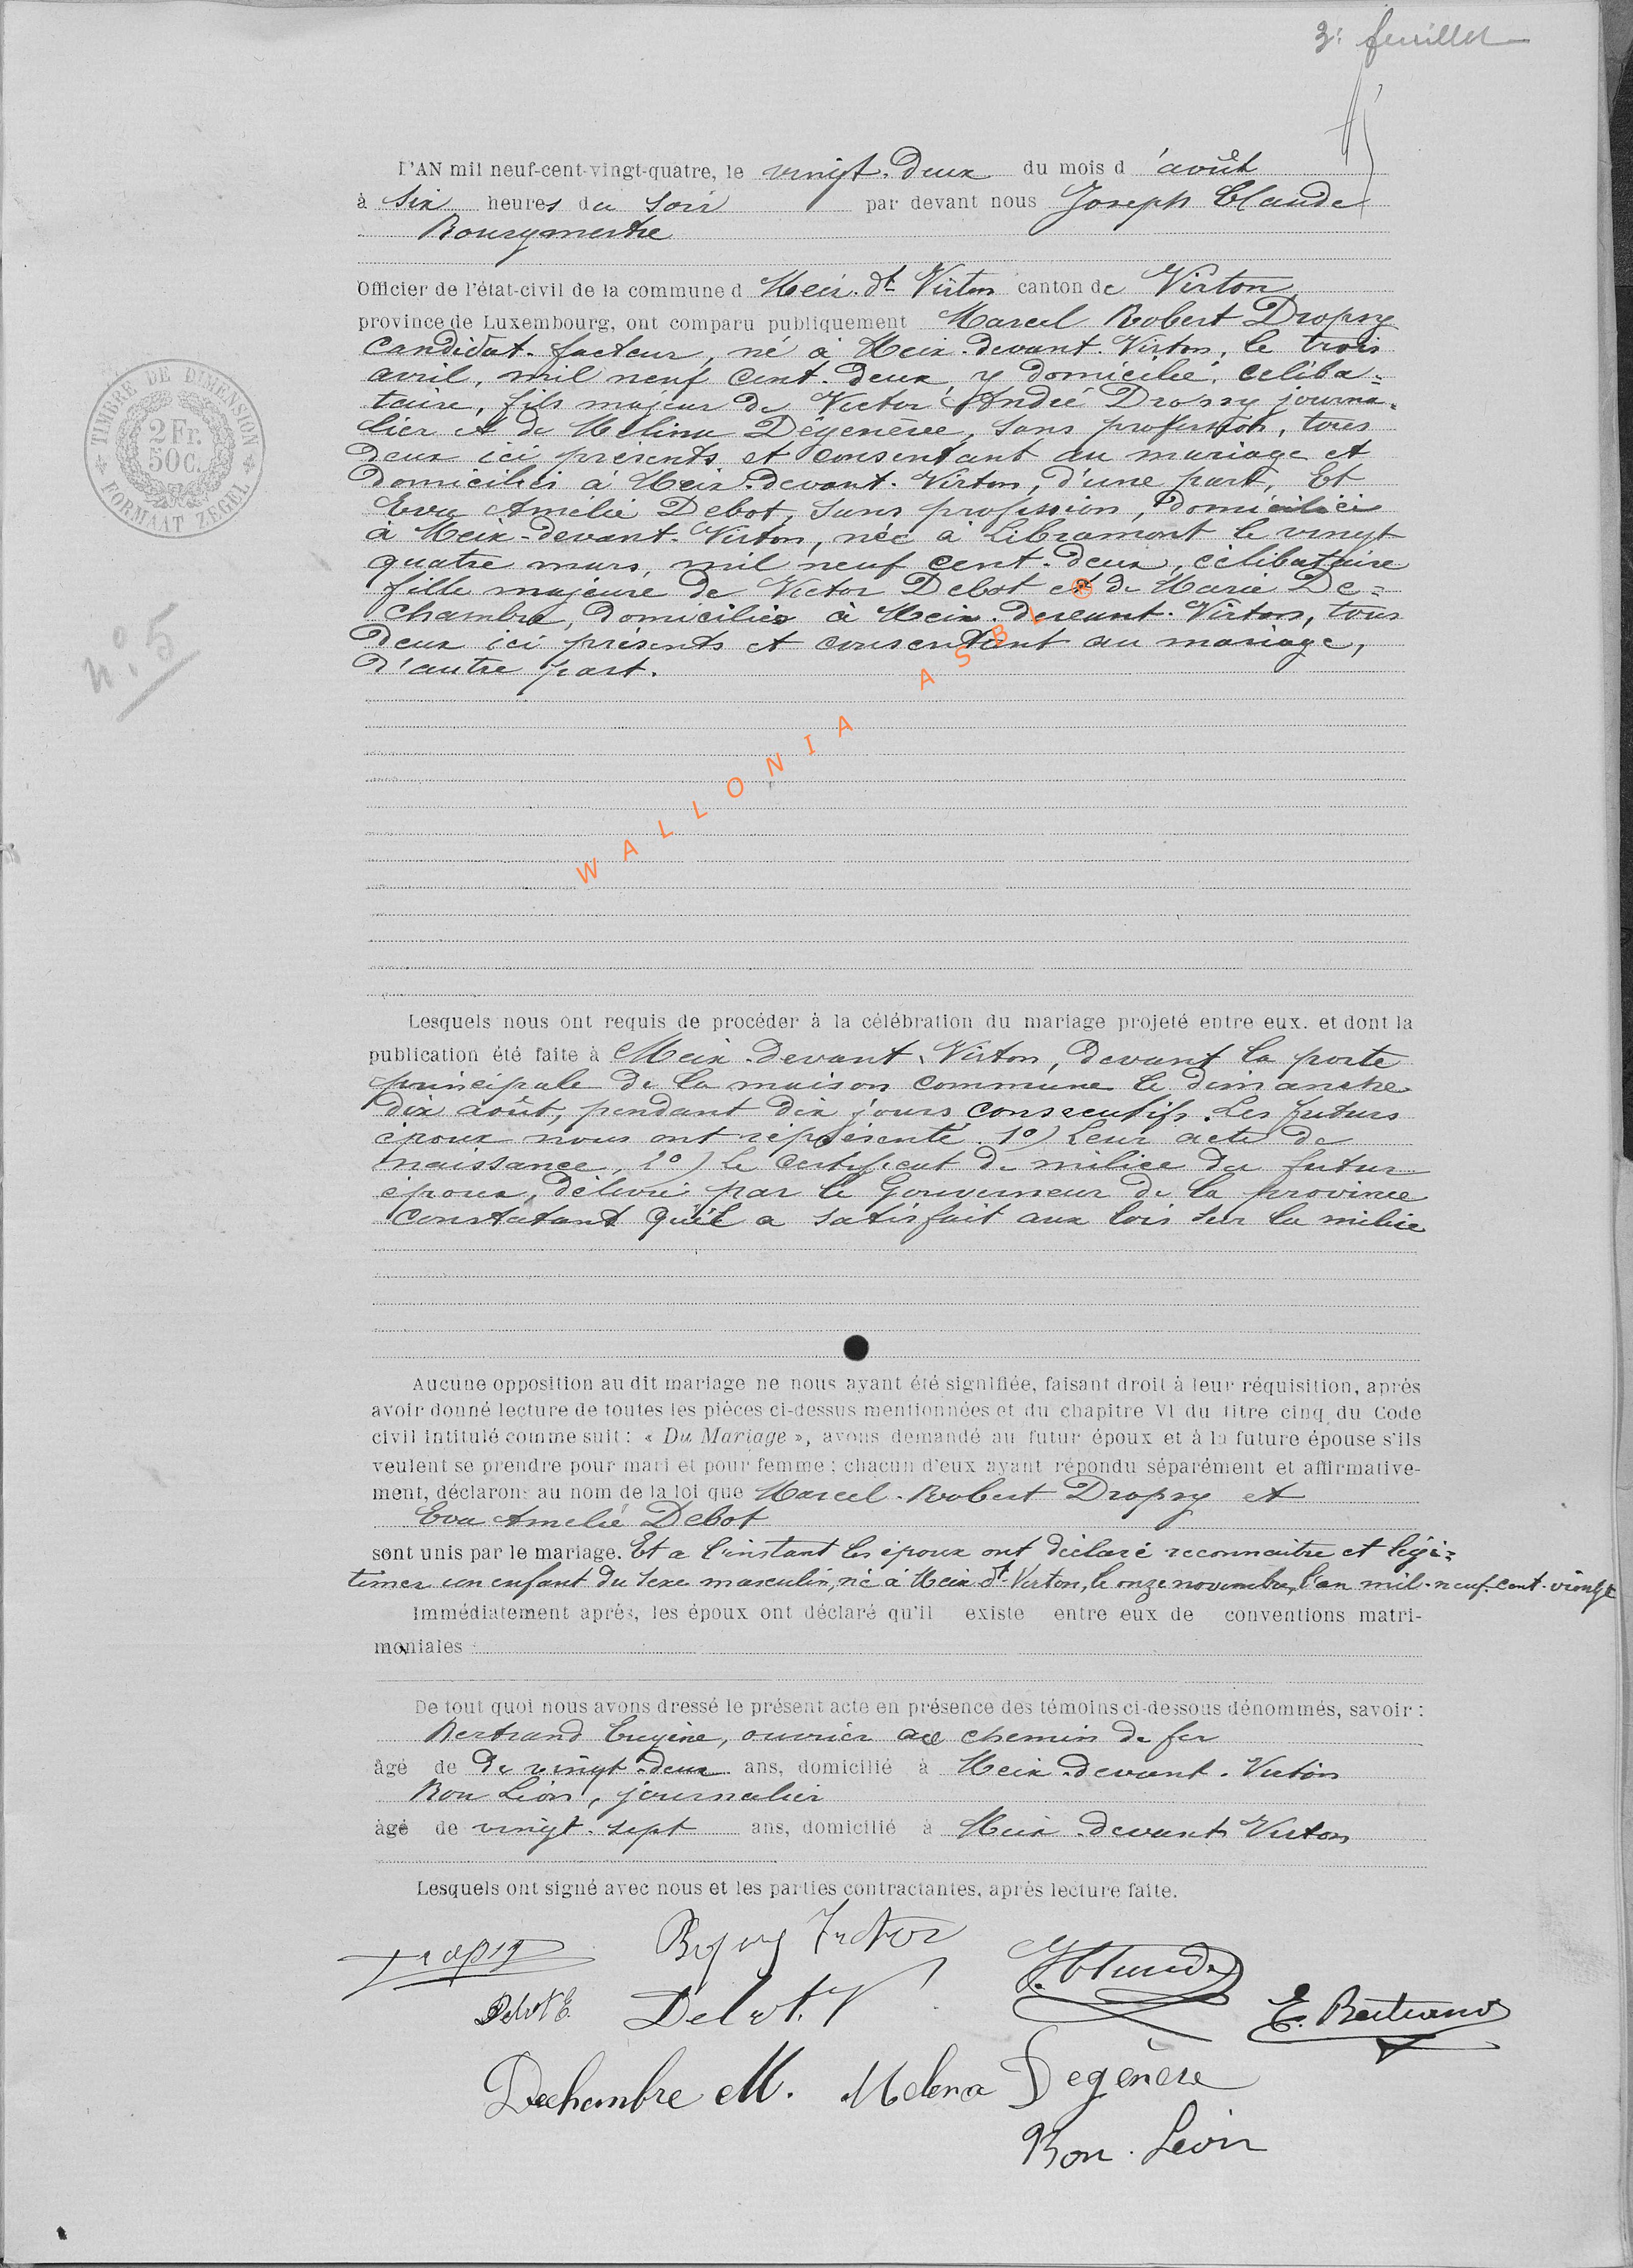 3: feuillet
L'AN mil neuf-cent-vingt-quatre, le vingt-deux du mois d'août
à six heures du soir par devant nous Joseph Claude
Bourgmestre
Officier de l'état-civil de la commune d Meix-dt Virton canton de Virton
province de Luxembourg, ont comparu publiquement Marcel Robert Dropsy
candidat-facteur, né à Meix-devant-Virton, le trois
avril, mil neuf cent-deux, y domicilié, céliba=
taire, fils majeur de Victor André Dropsy journa-
lier et de Mélina Dégenère, sans profession, tous
deux ici présents et consentant au mariage et
domiciliés à Meix-devant-Virton, d'une part, Et
Eva Amélie Debot, sans profession, domiciliée
à Meix-devant-Virton, née à Libramont le vingt
quatre mars, mil neuf cent-deux, célibataire
fille majeure de Victor Debot et de Marie De=
chambre, domiciliés à Meix-devant-Virton, tous
deux ici présents et consentant au mariage,
d'autre part.
TIMBRE DE DIMENSION
2 Fr.
50 C.
FORMAAT ZEGEL
n° 5
WALLONIA ASBL ®
Lesquels nous ont requis de procéder à la célébration du mariage projeté entre eux. et dont la
publication été faite à Meix-devant-Virton, devant la porte
principale de la maison commune le dimanche
dix août, pendant dix jours consécutifs. Les futurs
époux nous ont représenté. 1°) Leur acte de
naissance, 2°) le certificat de milice du futur
époux, délivré par le Gouverneur de la province
constatant qu'il a satisfait aux lois sur la milice
Aucune opposition au dit mariage ne nous ayant été signifiée, faisant droit à leur réquisition, après
avoir donné lecture de toutes les pièces ci-dessus mentionnées et du chapitre VI du titre cinq du Code
civil intitulé comme suit : « Du Mariage », avons demandé au futur époux et à la future épouse s'ils
veulent se prendre pour mari et pour femme ; chacun d'eux ayant répondu séparément et affirmative-
ment, déclarons au nom de la loi que Marcel-Robert Dropsy et
Eva Amélie Debot
sont unis par le mariage. Et a l'instant les époux ont déclaré reconnaitre et légi=
timer un enfant du sexe masculin, né à Meix-dt-Virton, le onze novembre, l'an mil-neuf-cent-vingt
Immédiatement après, les époux ont déclaré qu'il existe entre eux de conventions matri-
moniales
De tout quoi nous avons dressé le présent acte en présence des témoins ci-dessous dénommés, savoir :
Bertrand Eugène, ouvrier au chemin de fer
âgé de de vingt-deux ans, domicilié à Meix-devant-Virton
Bon Léon, journalier
âgé de vingt-sept ans, domicilié à Meix-devant-Virton
Lesquels ont signé avec nous et les parties contractantes, après lecture faite.
Dropsy Victor J. Claude
Debot E. Debot. V E. Bertrand
Dechambre M. Melina Degénère
Bon. Léon